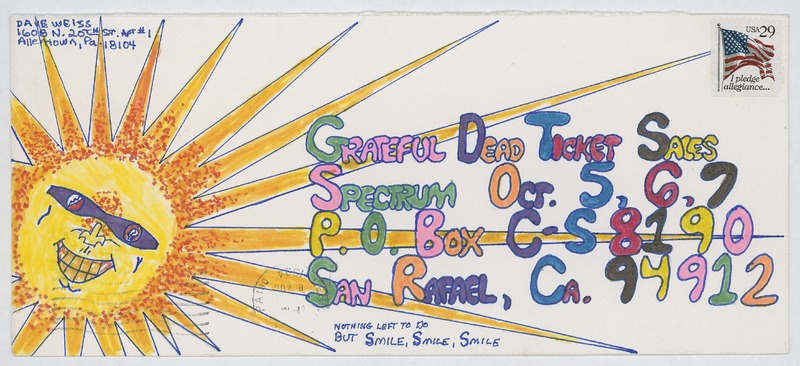 DAVE WEISS
1608 N. 20TH ST. APT #1
Allentown, Pa. 18104
USA 29
I pledge
allegiance...
GRATEFUL DEAD TICKET SALES
SPECTRUM OCT. 5, 6, 7
P.O. BOX C-S 8190
SAN RAFAEL, CA. 94912
NOTHING LEFT TO DO
BUT SMILE, SMILE, SMILE